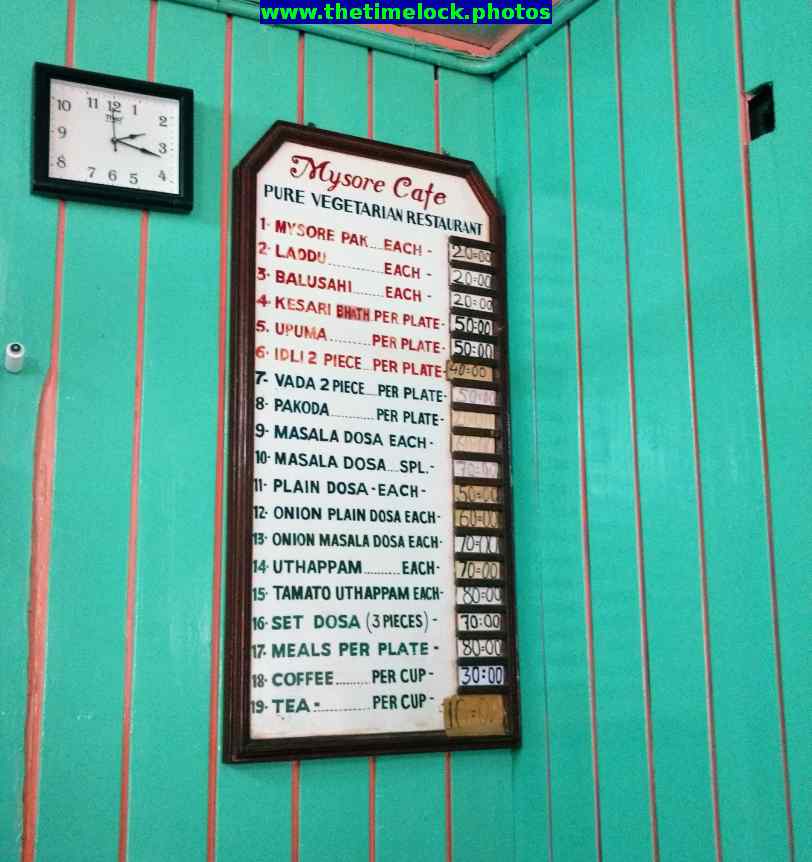 www.thetimelock.photos
10 11 12 1 2
9 3
8 7 6 5 4
Mysore Cafe
PURE VEGETARIAN RESTAURANT
1· MYSORE PAK...EACH - 20=00
2· LADDU..........EACH - 20=00
3· BALUSAHI.......EACH - 20=00
4· KESARI BHATH PER PLATE- 50:00
5· UPUMA.........PER PLATE- 50:00
6· IDLI 2 PIECE...PER PLATE- 40=00
7· VADA 2 PIECE....PER PLATE- 50=00
8· PAKODA..........PER PLATE-
9· MASALA DOSA EACH -
10· MASALA DOSA....SPL.- 70=00
11· PLAIN DOSA - EACH - 50=00
12· ONION PLAIN DOSA EACH- 60=00
13· ONION MASALA DOSA EACH- 70=00
14· UTHAPPAM.........EACH- 70=00
15· TAMATO UTHAPPAM EACH- 80=00
16· SET DOSA (3 PIECES) - 70=00
17· MEALS PER PLATE - 80=00
18· COFFEE.........PER CUP - 30:00
19· TEA -...........PER CUP -